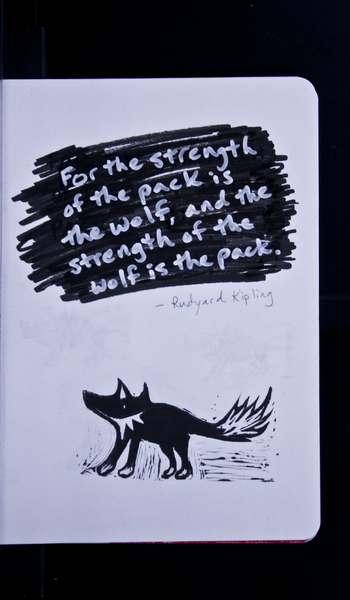 For the strength
of the pack is
the wolf, and the
strength of the
wolf is the pack.
– Rudyard Kipling